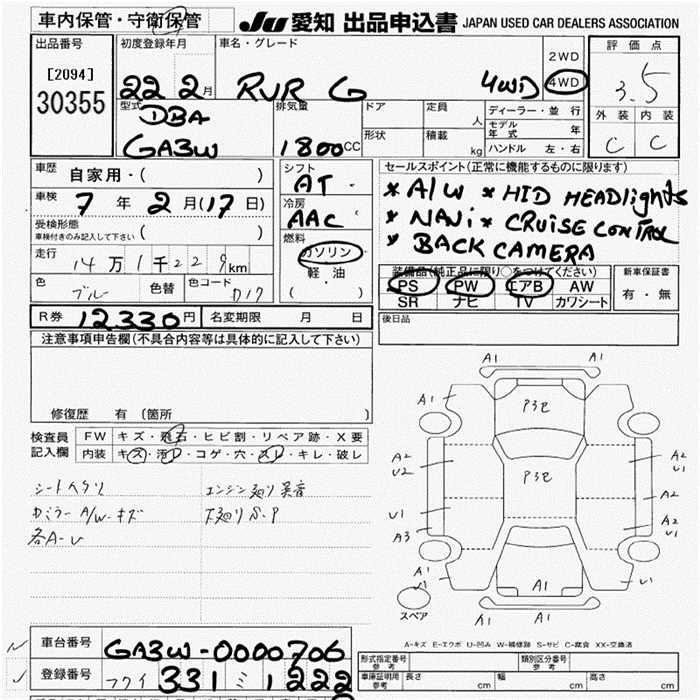 車内保管・守衛保管
JU 愛知 出品申込書 JAPAN USED CAR DEALERS ASSOCIATION
出品番号
[2094]
30355
初度登録年月
22 2月
車名・グレード
RVR G 4WD
2WD
4WD
評価点
3.5
外装 内装
C C
型式
DBA
GA3W
排気量
1800CC
ドア
定員
人
形状
積載
kg
ディーラー・並行
モデル年式 年
ハンドル 左・右
車歴
自家用・( )
車検
7年 2月(17日)
受検形態
車検付きのみ記入して下さい ( )
走行
14万1千229km
色
ブルー
色替
色コード
D17
シフト
AT
冷房
AAC
燃料
ガソリン
軽油
( )
セールスポイント(正常に機能するものに限ります)
* A/W * HID HEADlights
* NAVi * CRUISE CONTROL
* BACK CAMERA
装備品(純正品に限り○をつけてください)
PS PW エアB AW
SR ナビ TV カワシート
新車保証書
有・無
R券 12330円
名変期限 月 日
後日品
注意事項申告欄(不具合内容等は具体的に記入して下さい)
修復歴 有 (箇所 )
検査員記入欄
FW キズ・飛石・ヒビ割・リペア跡・X要
内装 キズ・汚レ・コゲ・穴・スレ・キレ・破レ
シートヘタリ
エンジン廻り異音
ドミラー A/W・キズ
下廻りS.P
各A-U
A1
A1
A1
P3セ
A1
A2
U2
P3セ
A2
U1
A2
U1
A3
A2
U1
A1
U1
A1
U1
スペア
A1
A1
A-キズ E-エクボ U-凹み W-補修跡 S-サビ C-腐食 XX-交換済
車台番号
GA3W-0000706
登録番号
フクイ 331 ミ 1222
形式指定番号
参考
類別区分番号
参考
車庫証明用
参考
長さ cm
幅 cm
高さ cm